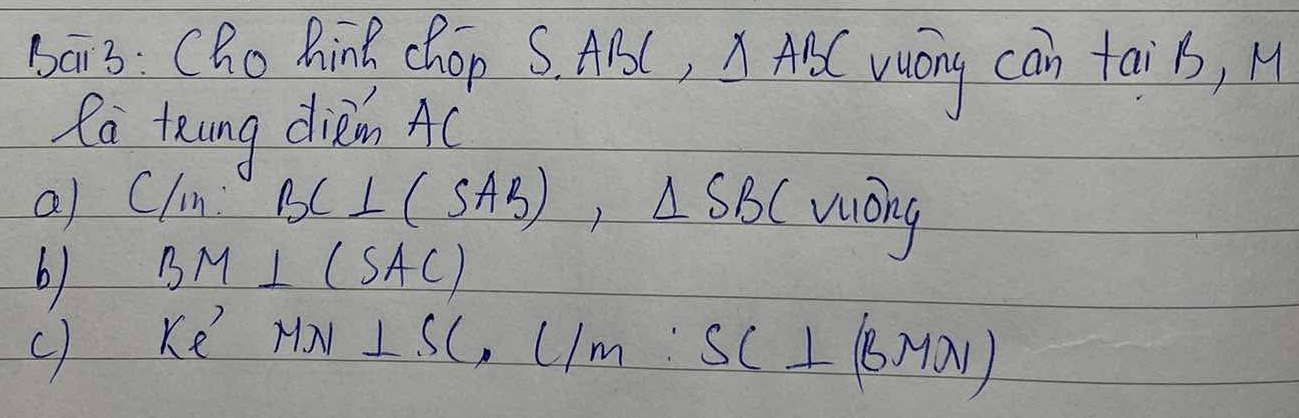 Bài 3: Cho hình chóp S.ABC, Δ ABC vuông cân tại B, M
là trung điểm AC
a) C/m: BC ⊥ (SAB), Δ SBC vuông
b) BM ⊥ (SAC)
c) Kẻ MN ⊥ SC, C/m : SC ⊥ (BMN)